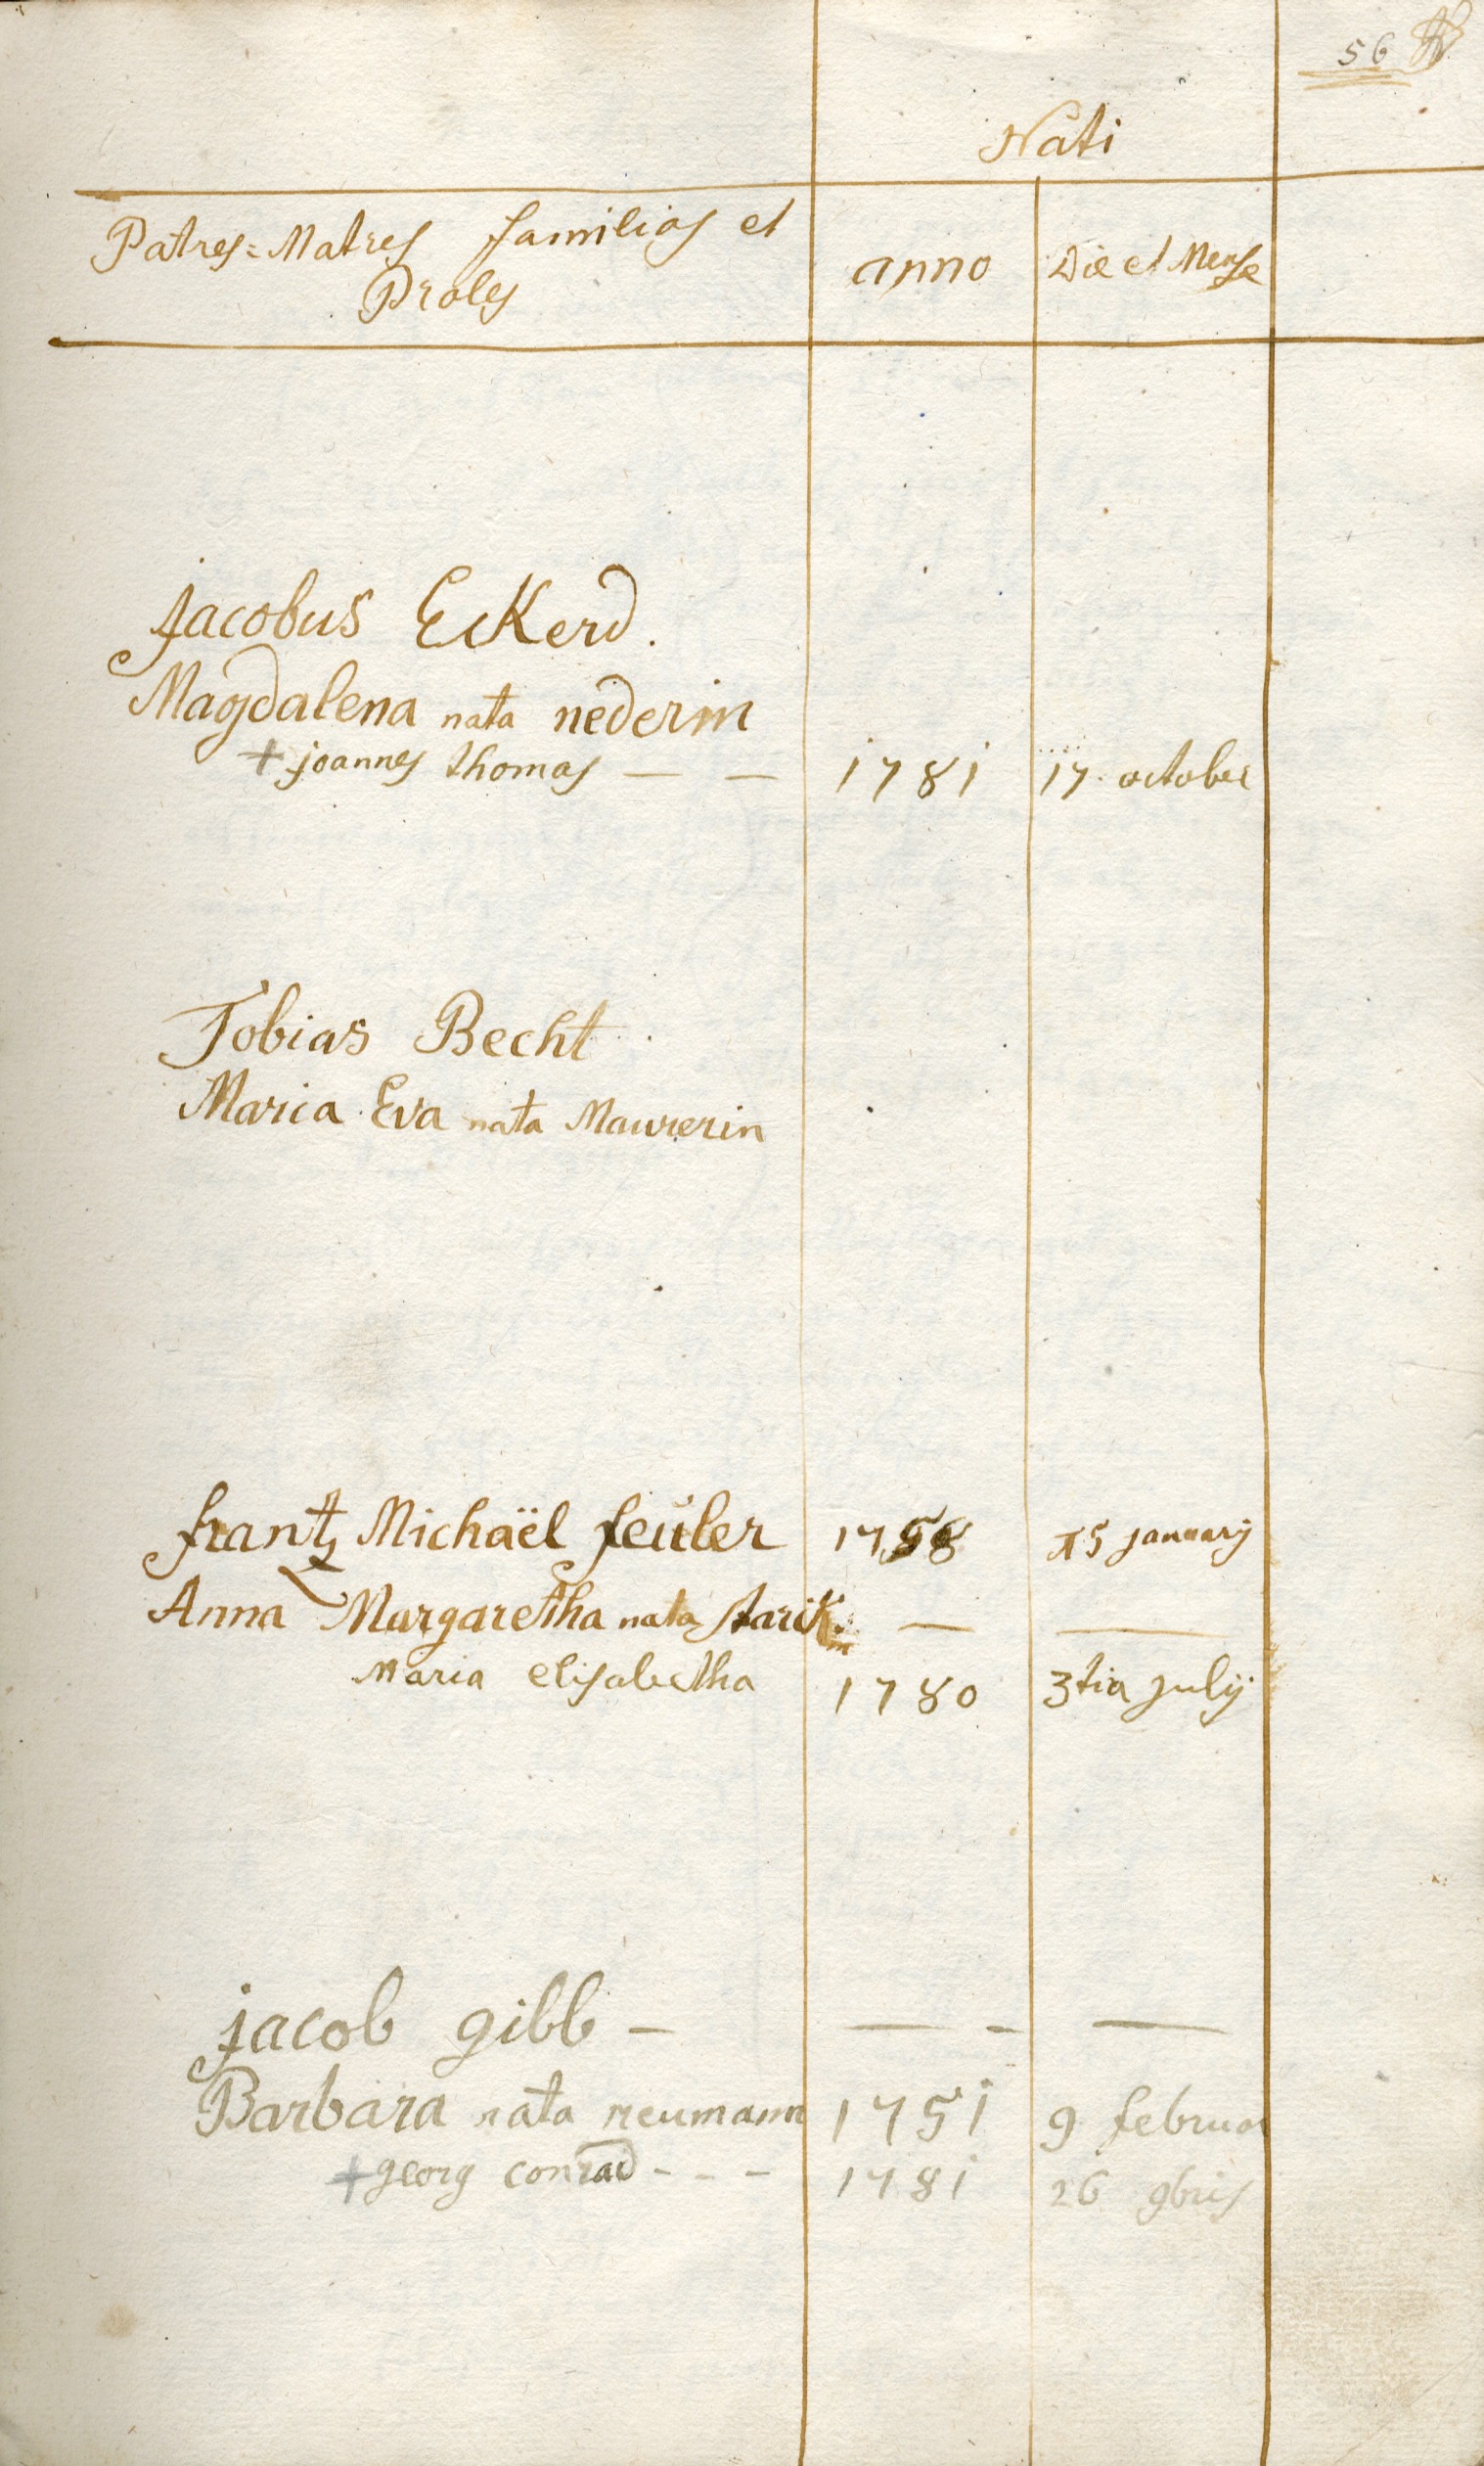 56
Nati
Patres=Matres familias et
Proles
anno
Die et Mense
Jacobus Eckerd.
Magdalena nata nederin
+ joannes thomas — — 1781 17 october
Tobias Becht
Maria Eva nata Maurerin
frantz Michaël feüler 1758 15 januarij
Anna Margaretha nata starckin — —
Maria elisabetha 1780 3tia julij
jacob gibb — — - —
Barbara nata neumann 1751 9 februar
+ georg conrad - - - 1781 26 9bris